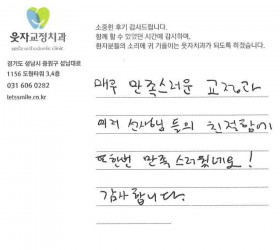 소중한 후기 감사드립니다.
함께 할 수 있었던 시간에 감사하며,
환자분들의 소리에 귀 기울이는 웃자치과가 되도록 하겠습니다.
웃자교정치과
smile orthodontic clinic
경기도 성남시 중원구 성남대로
1156 도원타워 3,4층
031 606 0282
letssmile.co.kr
매우 만족스러운 교정과
여러 선생님 들의 친절함에
또한번 만족 스러웠네요!
감사합니다.